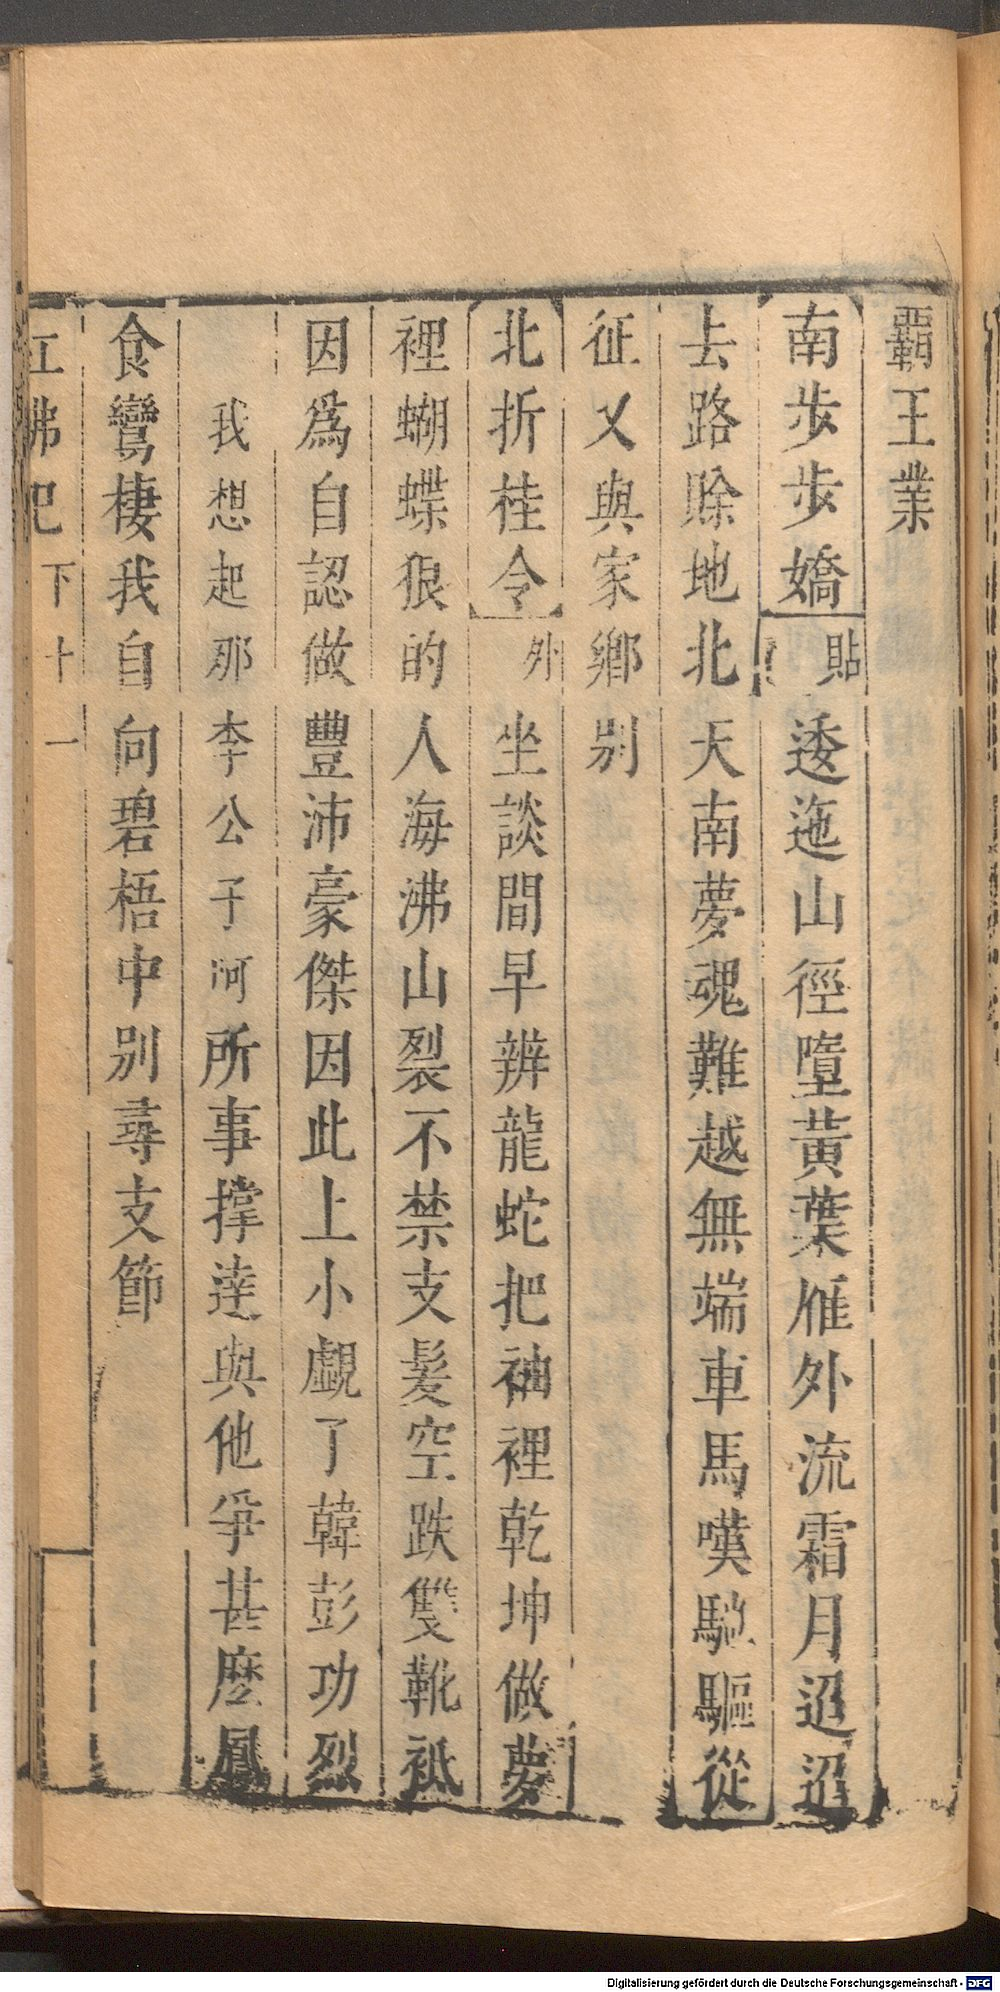 覇王業
南步步嬌貼逶迤山徑墮黃葉雁外流霜月迢迢
去路賒地北天南夢魂難越無端車馬嘆馳驅從
征又與家鄉別
北折桂令外坐談間早辨龍蛇把袖裡乾坤做夢
裡蝴蝶狠的人海沸山裂不禁支髮空跌雙靴祗
因爲自認做豐沛豪傑因此上小覷了韓彭功烈
我想起那李公子河所事撑達與他爭甚麽鳳
食鸞棲我自向碧梧中別尋支節
紅拂記 下 十一
Digitalisierung gefördert durch die Deutsche Forschungsgemeinschaft - DFG